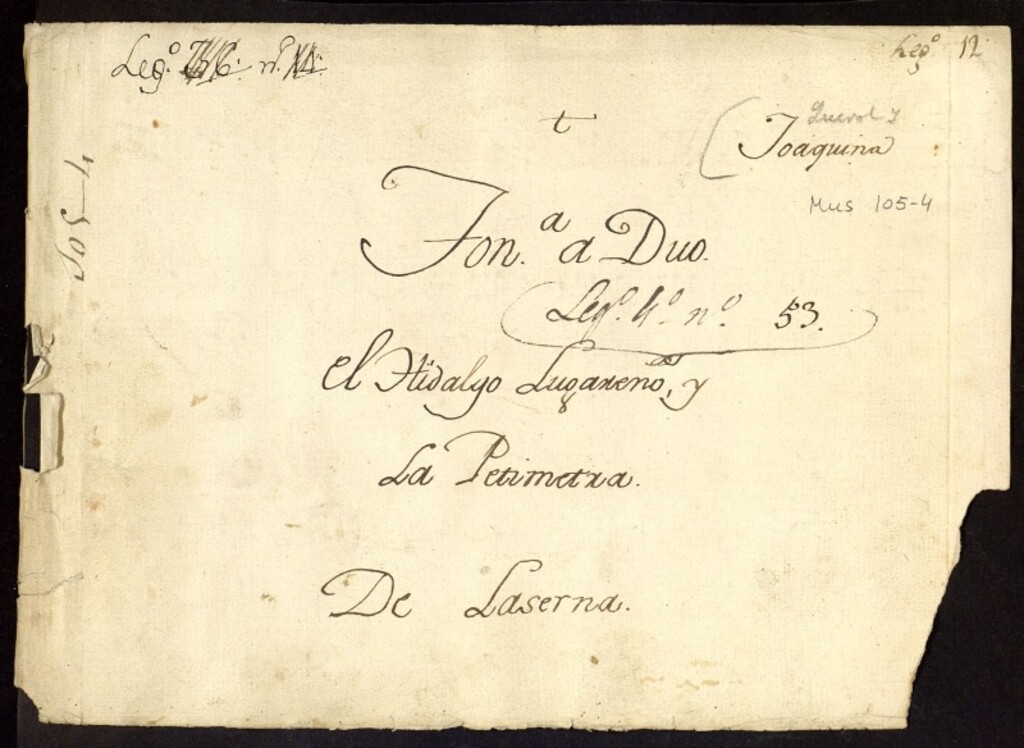 Leg.º n.º
Leg.º 12
t
Querol y
Joaquina
Mus 105-4
105-4
Ton.ª a Duo.
Leg.º 4.º n.º 53.
el Hidalgo Lugareño, y
La Petimetra.
De Laserna.